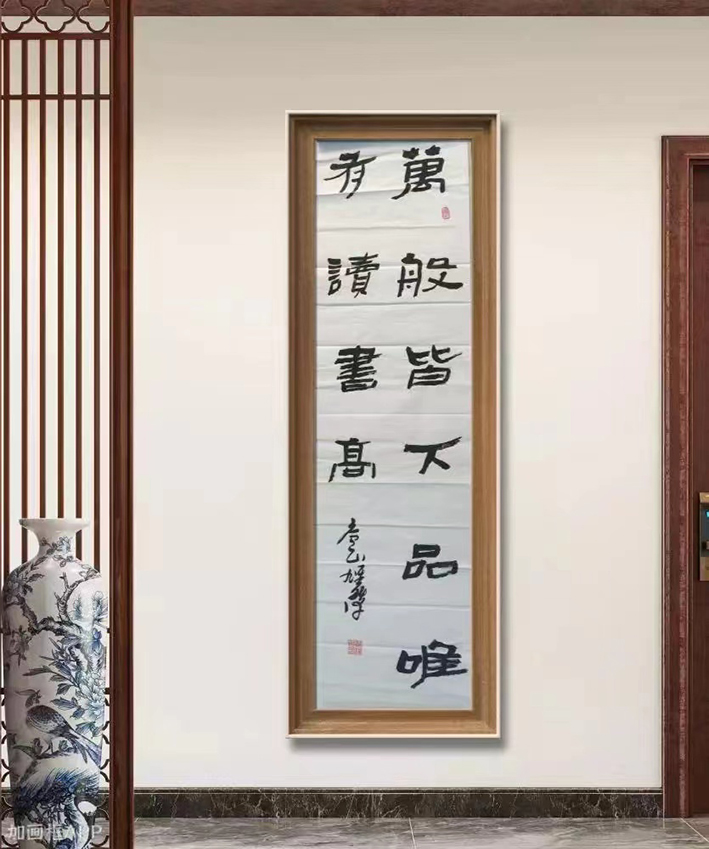 萬般皆下品唯
有讀書高
加画框APP